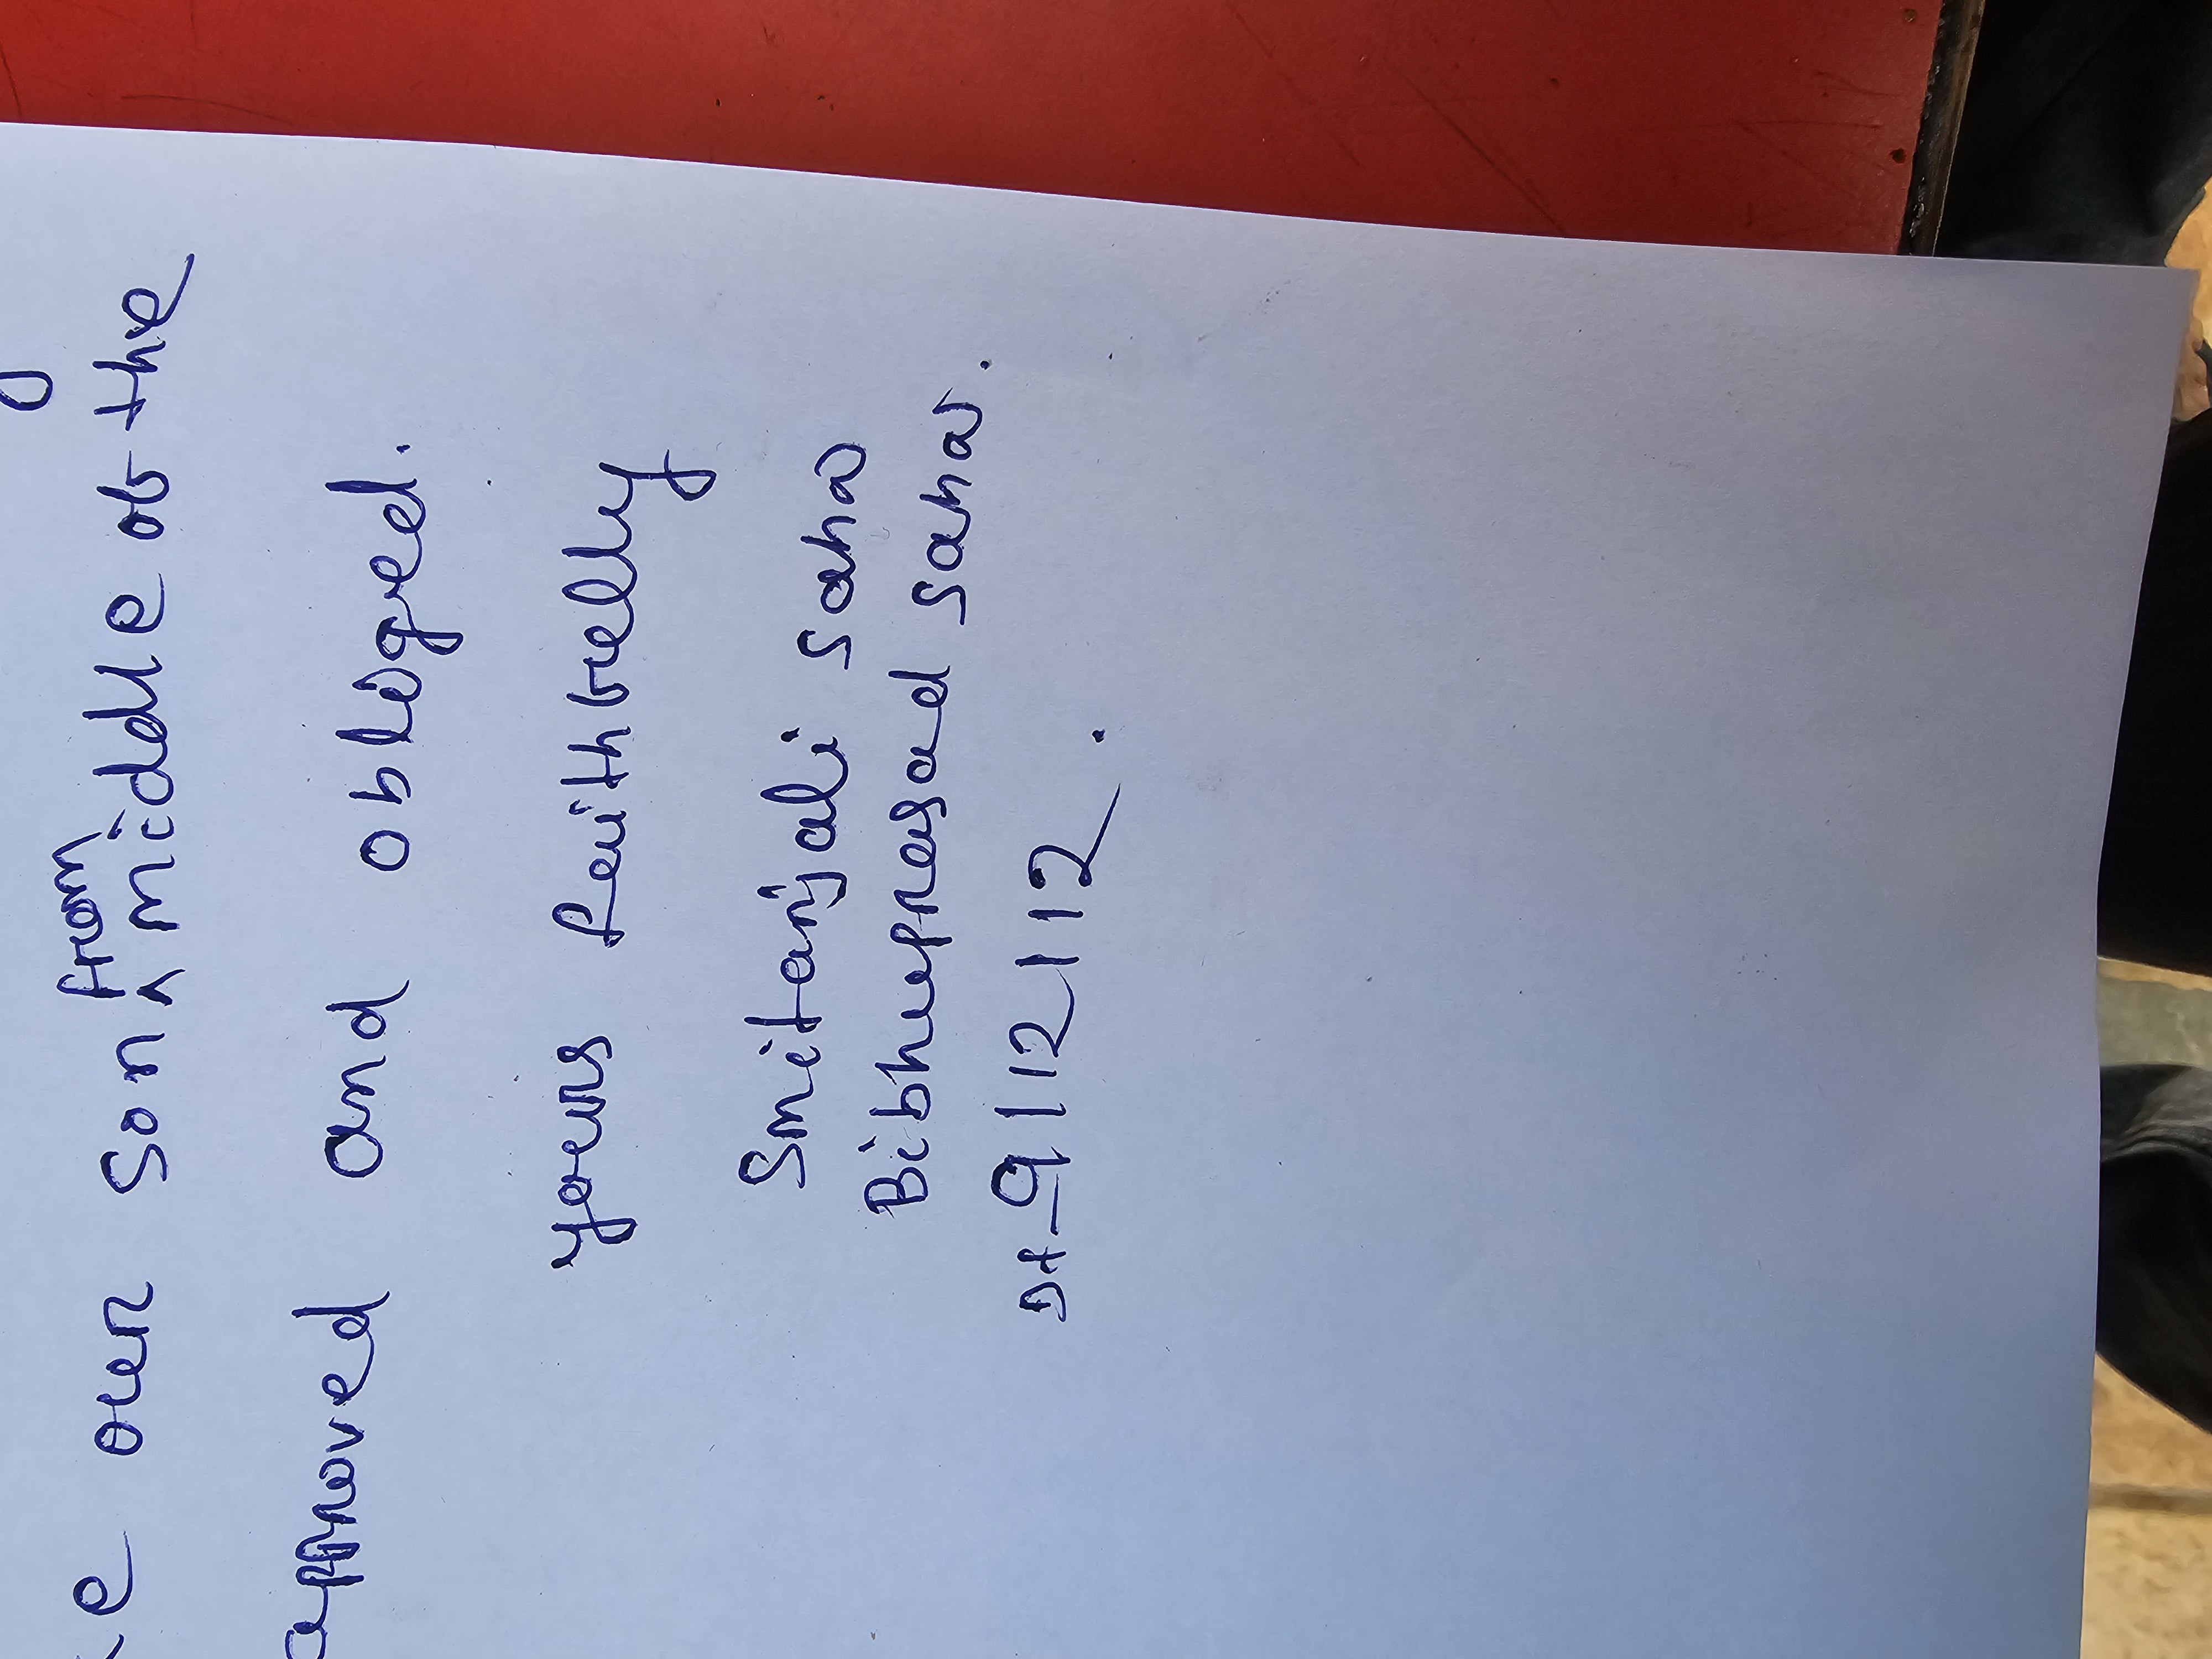 our Son from middle of the
approved and obliged.
yours faithfully
Smitanjali Saha
Bibhuprasad Saha.
Dt-9/12/12.